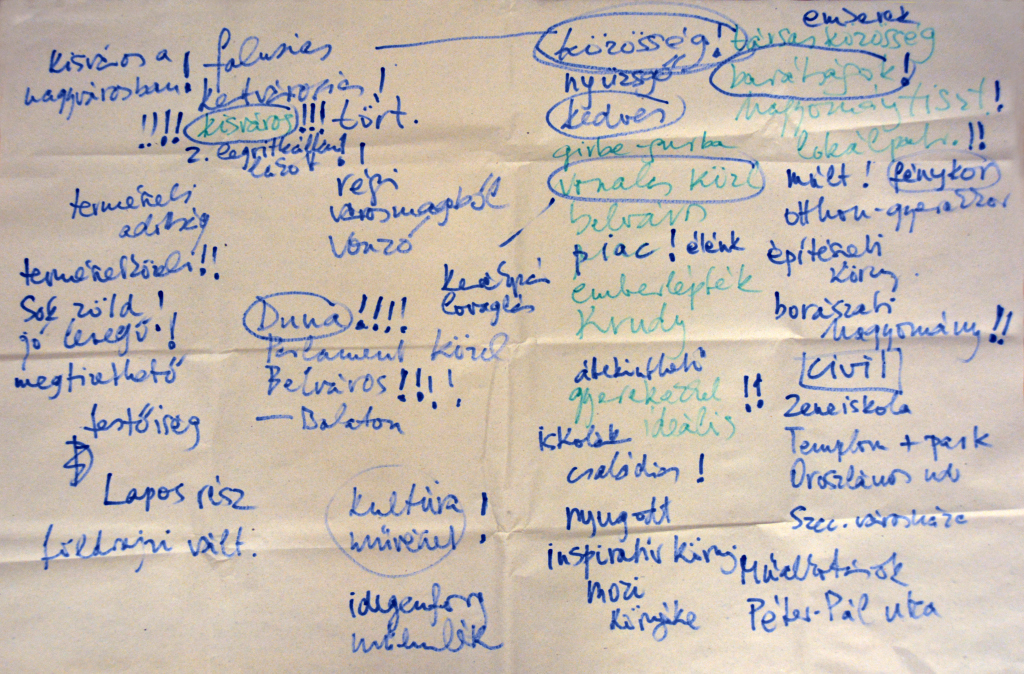 kisváros a
nagyvárosban!
falusias
kertvárosias!
!!!! kisváros !!!
2. legritkábban
lakó!
tört.!
régi
városmagból
vonzó
természeti
adottság
természetközeli!!
Sok zöld!
jó levegő!!
megfizethető
festőiség
Lapos rész
földrajzi vált.
Duna!!!!
Parlament közel
Belváros!!!!
— Balaton
kultúra!
művészet!
idegenforg
műemlék
közösség!
nyüzsgő
kedves
girbe-gurba
vonalas közl
belváros
piac! élénk
kerékpár
lovaglás
emberlépték
Krudy
átekinthető
gyerekekkel!!
ideális
iskolák
családias!
nyugott
inspiratív körny.
mozi
környéke
emberek
társas közösség
barátságok!
hagyomány tiszt!
lokálpatr.!!
múlt! fénykor
otthon-gyerekkor
építészeti
körny.
borászati
hagyomány!!
Civil
Zeneiskola
Templom + park
Oroszlános udv
Szec. városháza
Műalkotások
Péter-Pál utca